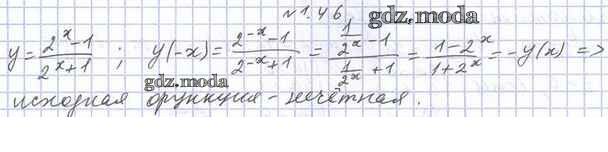 № 1.46 gdz.moda
y = (2^x - 1)/(2^x + 1) ; y(-x) = (2^-x - 1)/(2^-x + 1) = (1/2^x - 1)/(1/2^x + 1) = (1 - 2^x)/(1 + 2^x) = -y(x) =>
gdz.moda
исходная функция - нечётная.